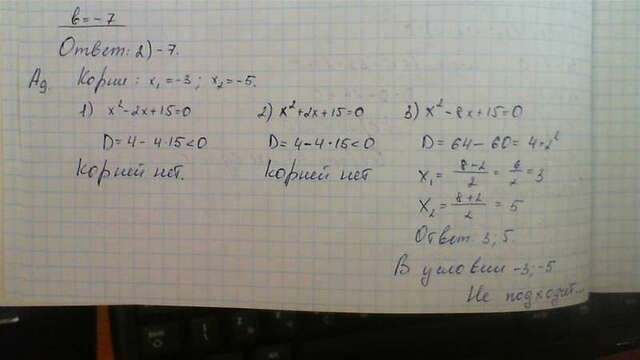 b = -7
Ответ: 2) -7.
А9 Корни: x₁ = -3; x₂ = -5.
1) x² - 2x + 15 = 0
D = 4 - 4·15 < 0
Корней нет.
2) x² + 2x + 15 = 0
D = 4 - 4·15 < 0
Корней нет
3) x² - 8x + 15 = 0
D = 64 - 60 = 4 = 2²
x₁ = (8-2)/2 = 6/2 = 3
x₂ = (8+2)/2 = 5
Ответ 3; 5
В условии -3; -5
Не подходит...